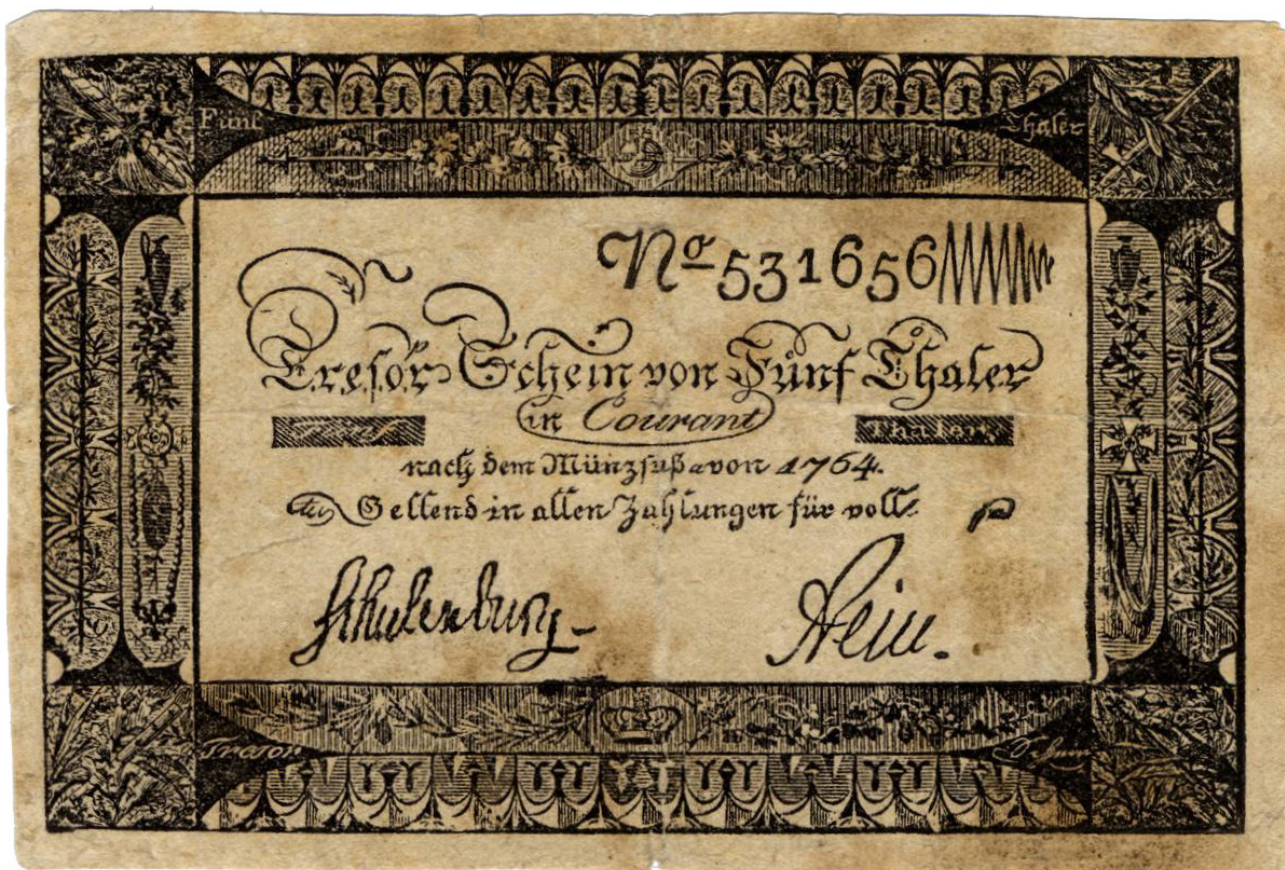 Fünf Thaler
Nº 531656
Tresor-Schein von Fünf Thaler
in Courant
Thaler
nach dem Münzfuß von 1764.
Geltend in allen Zahlungen für voll
Schulenburg
Tresor Schein